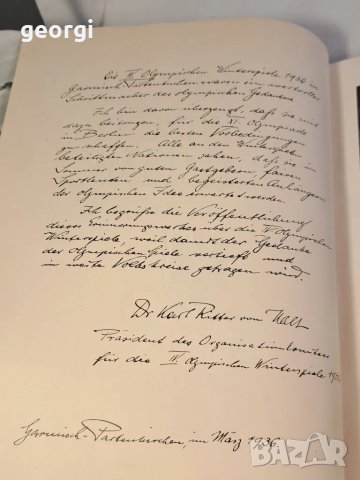 regina_rgi
Die IV. Olympischen Winterspiele 1936 in
Garmisch-Partenkirchen waren ein wertvoller
Schrittmacher des olympischen Gedankens.
Ich bin davon überzeugt, daß sie mit
dazu beitragen, für die XI. Olympiade
in Berlin die besten Vorbedingungen
zu schaffen. Alle an den Winterspielen
beteiligten Nationen sahen, daß sie im
Sommer von guten Gastgebern, fairen
Sportsleuten und begeisterten Anhängern
der olympischen Idee erwartet werden.
Ich begrüße die Veröffentlichung
dieses Erinnerungswerkes über die IV. Olympischen
Winterspiele, weil damit der Gedanke
der Olympischen Spiele vertieft und
in weite Volkskreise getragen wird.
Dr Karl Ritter von Halt
Präsident des Organisationskomitees
für die IV. Olympischen Winterspiele 1936
Garmisch-Partenkirchen, im März 1936.
BAZAR.BG